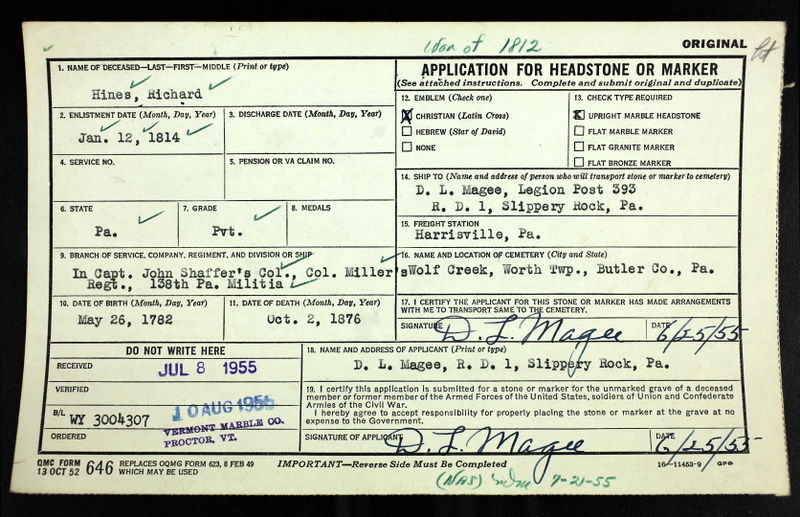 War of 1812
ORIGINAL
1. NAME OF DECEASED—LAST—FIRST—MIDDLE (Print or type)
Hines, Richard
2. ENLISTMENT DATE (Month, Day, Year)
Jan. 12, 1814
3. DISCHARGE DATE (Month, Day, Year)
4. SERVICE NO.
5. PENSION OR VA CLAIM NO.
6. STATE
Pa.
7. GRADE
Pvt.
8. MEDALS
9. BRANCH OF SERVICE, COMPANY, REGIMENT, AND DIVISION OR SHIP
In Capt. John Shaffer's Col., Col. Miller's
Regt., 138th Pa. Militia
10. DATE OF BIRTH (Month, Day, Year)
May 26, 1782
11. DATE OF DEATH (Month, Day, Year)
Oct. 2, 1876
APPLICATION FOR HEADSTONE OR MARKER
(See attached instructions. Complete and submit original and duplicate)
12. EMBLEM (Check one)
X CHRISTIAN (Latin Cross)
HEBREW (Star of David)
NONE
13. CHECK TYPE REQUIRED
X UPRIGHT MARBLE HEADSTONE
FLAT MARBLE MARKER
FLAT GRANITE MARKER
FLAT BRONZE MARKER
14. SHIP TO (Name and address of person who will transport stone or marker to cemetery)
D. L. Magee, Legion Post 393
R. D. 1, Slippery Rock, Pa.
15. FREIGHT STATION
Harrisville, Pa.
16. NAME AND LOCATION OF CEMETERY (City and State)
Wolf Creek, Worth Twp., Butler Co., Pa.
17. I CERTIFY THE APPLICANT FOR THIS STONE OR MARKER HAS MADE ARRANGEMENTS
WITH ME TO TRANSPORT SAME TO THE CEMETERY.
SIGNATURE D. L. Magee DATE 6/25/55
DO NOT WRITE HERE
RECEIVED JUL 8 1955
VERIFIED
10 AUG 1955
B/L WY 3004307
VERMONT MARBLE CO.
PROCTOR, VT.
ORDERED
18. NAME AND ADDRESS OF APPLICANT (Print or type)
D. L. Magee, R. D. 1, Slippery Rock, Pa.
19. I certify this application is submitted for a stone or marker for the unmarked grave of a deceased
member or former member of the Armed Forces of the United States, soldiers of Union and Confederate
Armies of the Civil War.
I hereby agree to accept responsibility for properly placing the stone or marker at the grave at no
expense to the Government.
SIGNATURE OF APPLICANT D. L. Magee DATE 6/25/55
QMC FORM
13 OCT 52 646 REPLACES OQMG FORM 623, 8 FEB 49
WHICH MAY BE USED
IMPORTANT—Reverse Side Must be Completed
16—11453-9 GPO
(NAS) 7-21-55